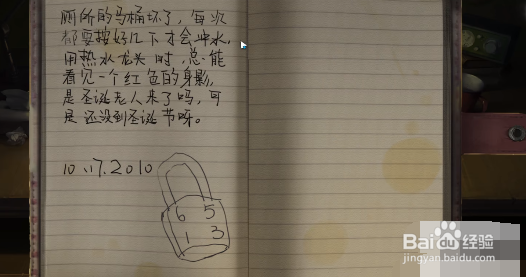 厕所的马桶坏了，每次
都要按好几下才会冲水，
用热水龙头时，总能
看见一个红色的身影，
是圣诞老人来了吗，可
是还没到圣诞节呀。
10.17.2010
6 5
1 3
Baidu经验
jingyan.baidu.com